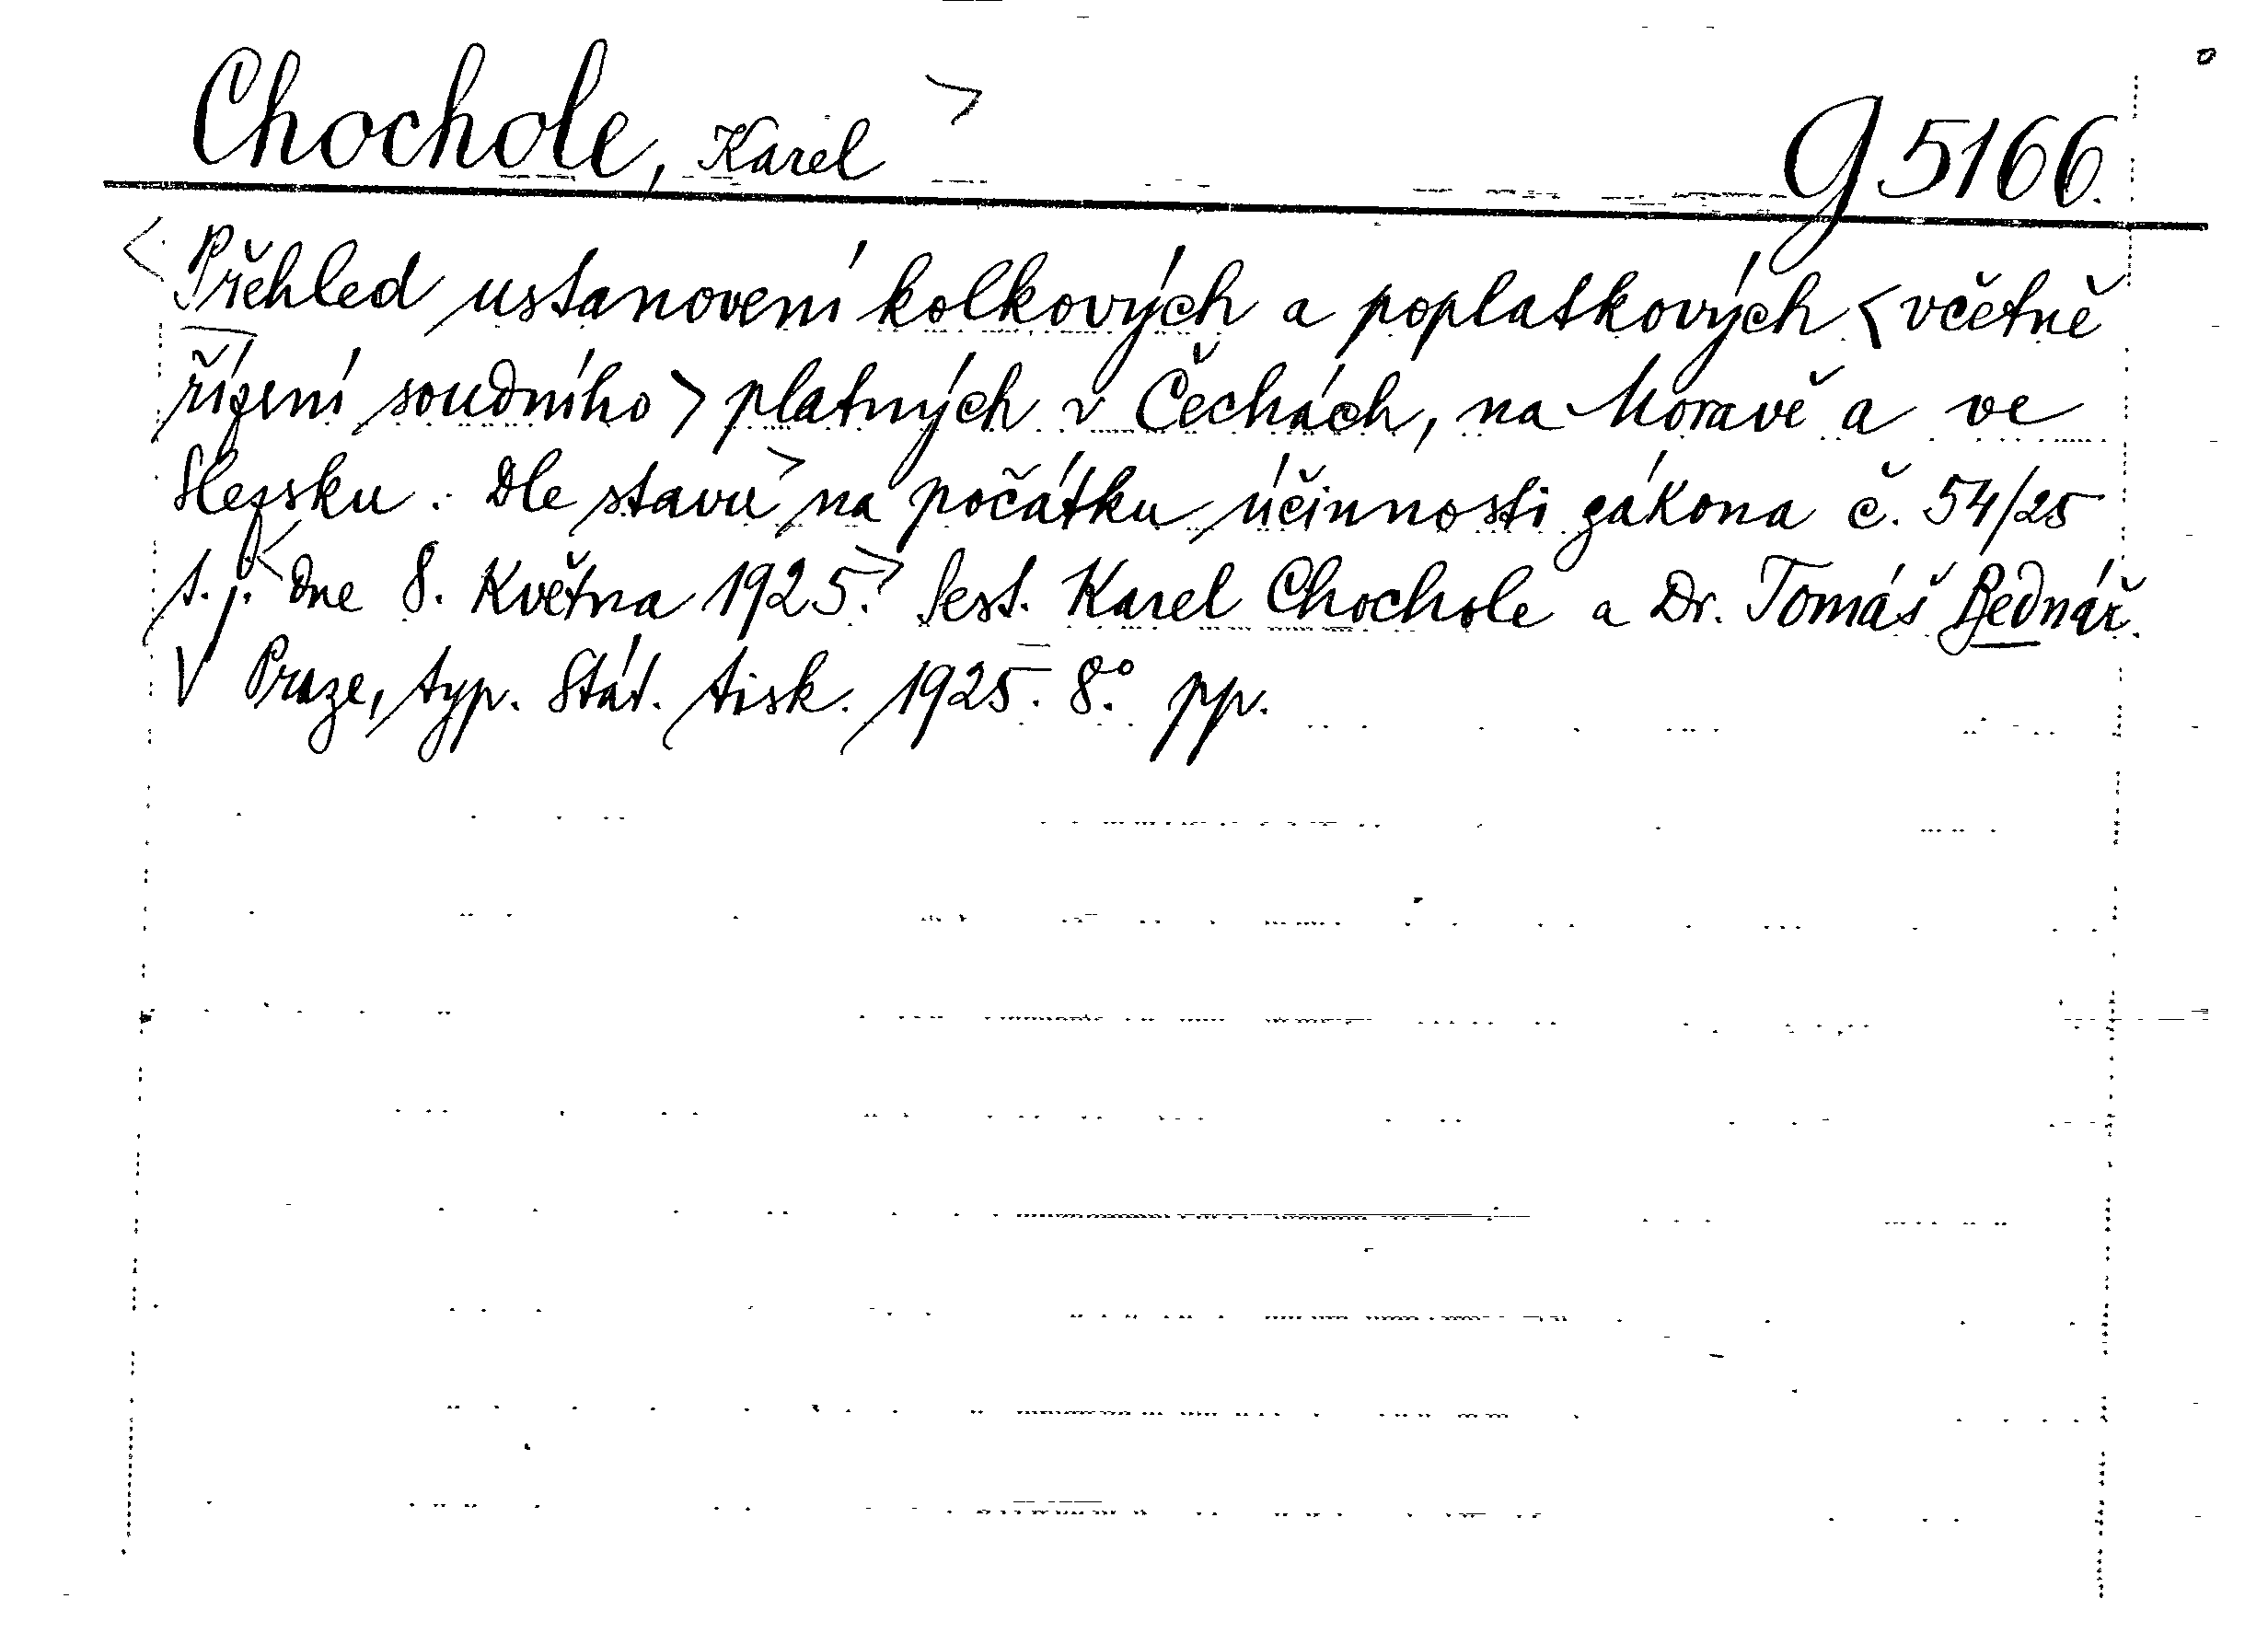 Chochole, Karel > G 5166.
< Přehled ustanovení kolkových a poplatkových < včetně
řízení soudního > platných v Čechách, na Moravě a ve
Slezsku. Dle stavu > na počátku účinnosti zákona č. 54/25
t. j. < dne 8. Května 1925. > Sest. Karel Chochole a Dr. Tomáš Bednář.
V Praze, typ. Stát. tisk. 1925. 8.° pp.